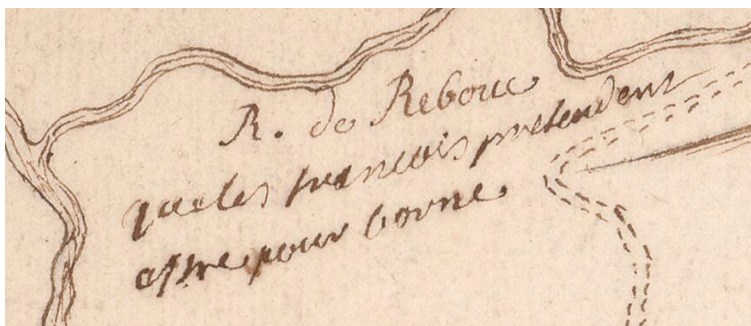 R. de Rebouc
que les francois pretendent
estre pour borne